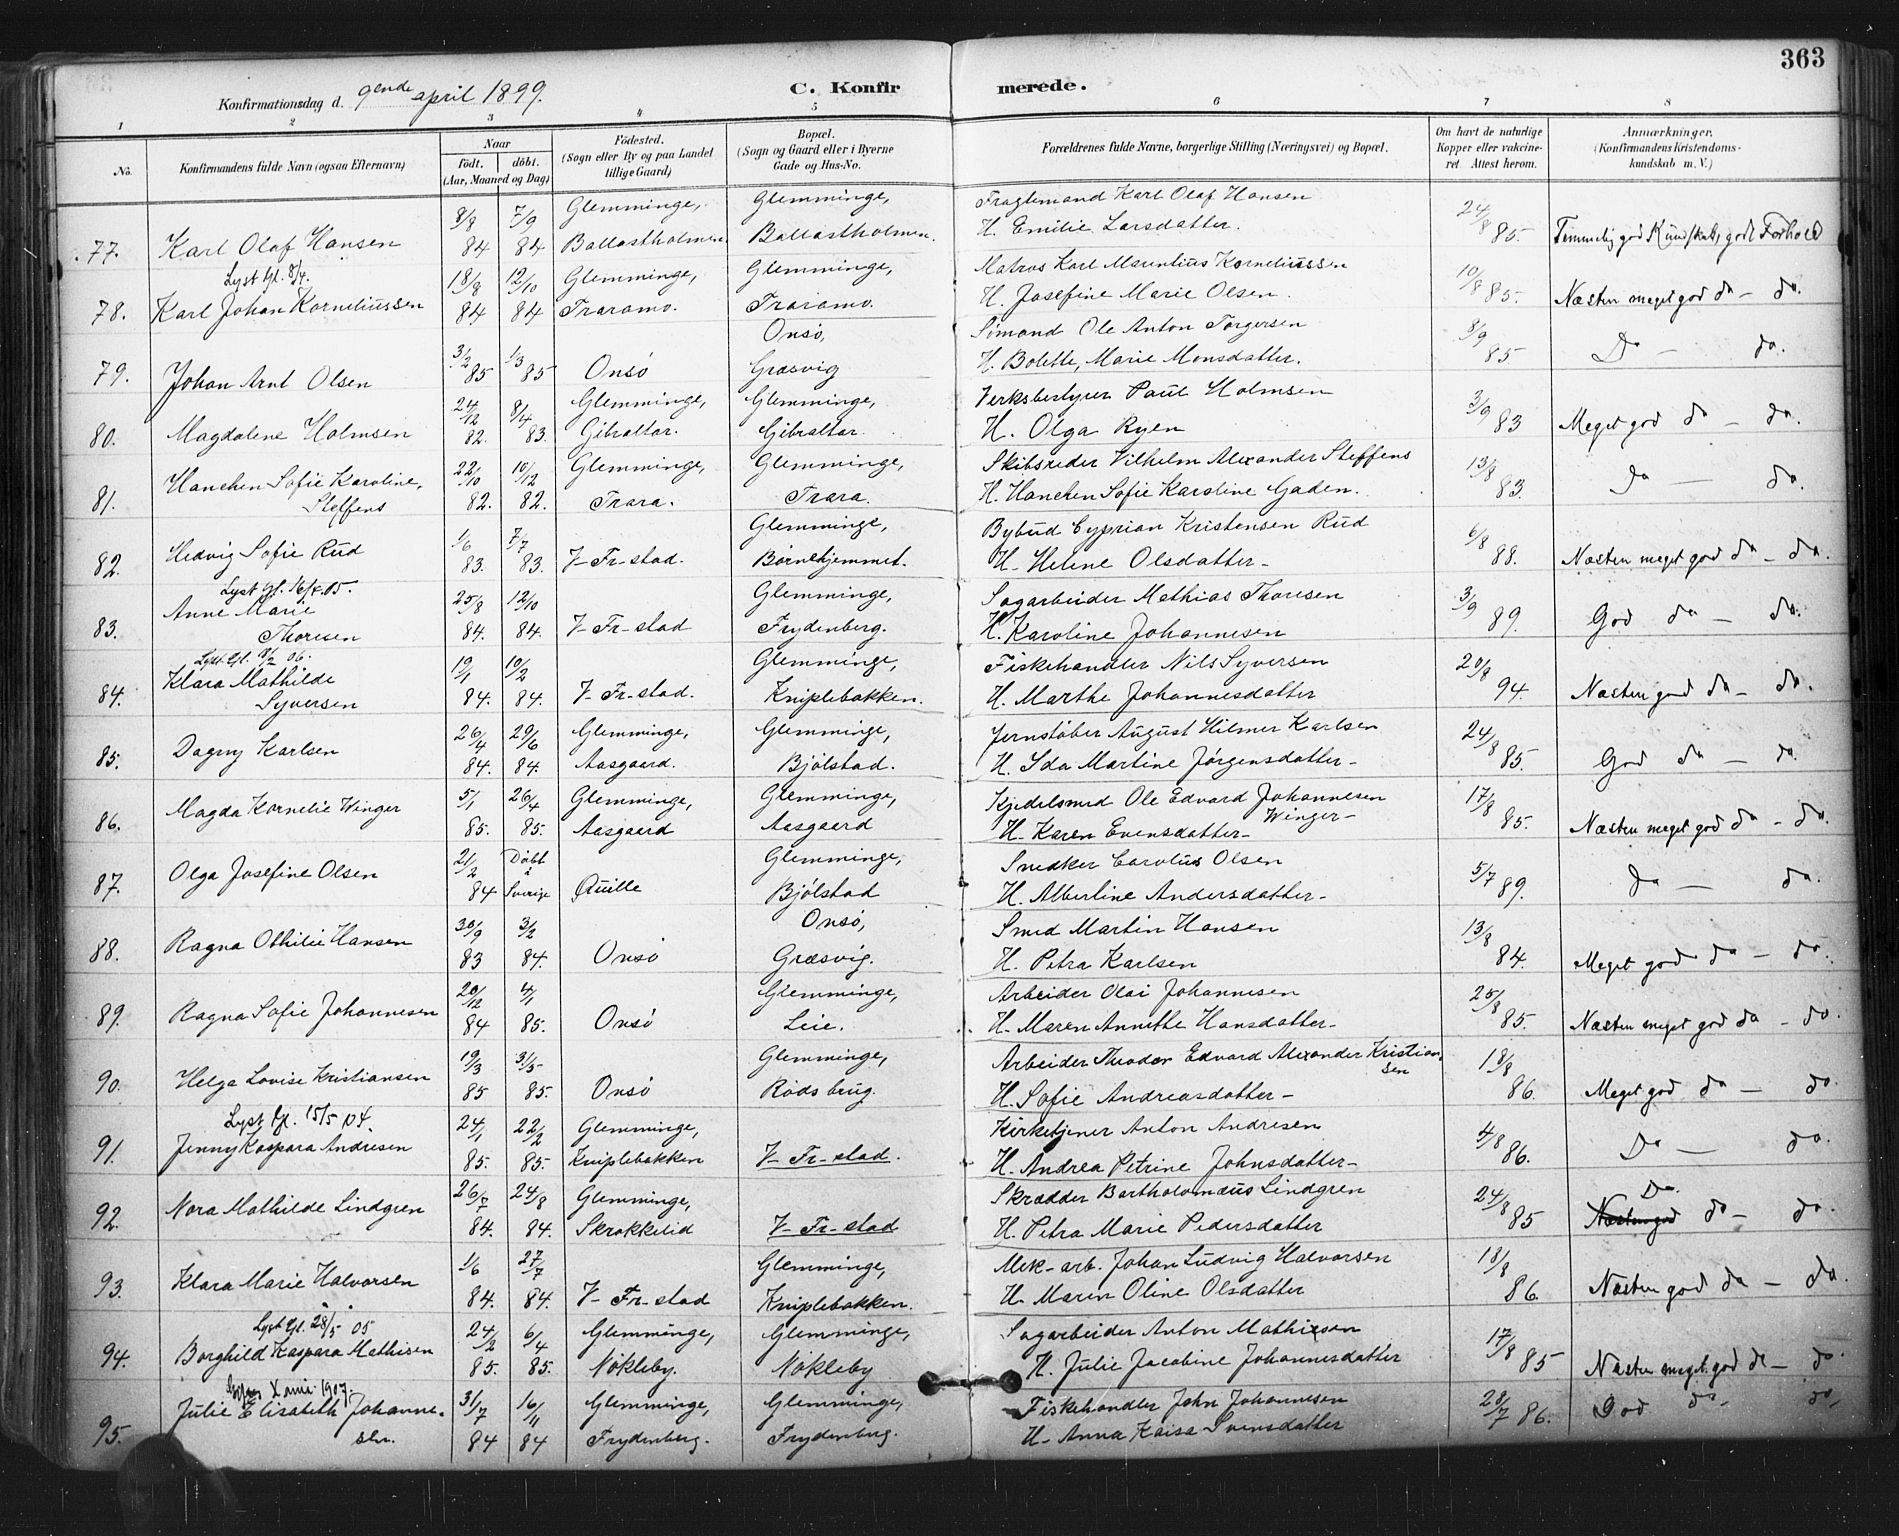 363
Konfirmationsdag d. 9ende april 1899. C. Konfir merede.
1 2 3 4 5 6 7 8
No. Konfirmandens fulde Navn (ogsaa Efternavn) Naar født. døbt. (Aar, Maaned og Dag) Fødested. (Sogn eller By og paa Landet tillige Gaard) Bopæl. (Sogn og Gaard eller i Byerne Gade og Hus-No. Forældrenes fulde Navne, borgerlige Stilling (Næringsvei) og Bopæl. Om havt de naturlige Kopper eller vakcineret. Attest herom. Anmærkninger. (Konfirmandens Kristendomskundskab m. V.)
8/8 7/9 Glemminge, Glemminge, Karl Olaf Hansen 24/8
77. Karl Olaf Hansen 84 84 Ballastholmen. Ballastholmen. H. Emilie Larsdatter. 85. Temmelig god Kundskab, godt Forhold
Lyst Gl. 8/4. 18/8 12/10 Glemminge, Glemminge, Matros Karl Marentius Korneliussen 10/8
78. Karl Johan Korneliussen 84 84 Traramo. Traramo. H. Josefine Marie Olsen. 85. Næsten meget god do - do.
3/2 1/3 Onsø, Sømand Ole Anton Torgersen 8/9
79. Johan Arnt Olsen 85 85 Onsø Græsvig H. Bolette, Marie Monsdatter. 85 Do - do.
24/12 8/4 Glemminge, Glemminge, Verksbestyrer Paul Holmsen 3/9
80. Magdalene Holmsen 82. 83. Gibraltar. Gibraltar. H. Olga Ryen 83 Meget god do - do.
Hanchen Sofie Karoline, 22/10 10/12 Glemminge, Glemminge, Skibsreder Vilhelm Alexander Steffens 13/8
81. Steffens 82. 82. Trara. Trara. H. Hanchen Sofie Karoline Gaden. 83. Do - do.
1/6 7/7 Glemminge, Bybud Cyprian Kristensen Rud 6/8
82. Hedvig Sofie Rud 83. 83. V-Fr-stad. Børnehjemmet. H. Helene Olsdatter- 88. Næsten meget god do - do.
Lyst Gl. 05.
Anne Marie 25/8 12/10 Glemminge, Sagarbeider Mathias Thoresen 3/9
83. Thoresen 84. 84. V-Fr-stad Frydenberg. H. Karoline Johannesen 89. God do - do.
Lyst Gl. 06.
Klara Mathilde 19/1 10/2 Glemminge, Fiskehandler Nils Syversen 20/8
84. Syversen 84. 84. V-Fr-stad. Kniplebakken. H. Marthe Johannesdatter 94. Næsten god do - do.
26/4 29/6 Glemminge, Glemminge, Jernstøber August Hilmer Karlsen 24/8
85. Dagny Karlsen 84. 84. Aasgaard. Bjølstad. H. Ida Martine Jørgensdatter- 85. God do - do.
5/1 26/4 Glemminge, Glemminge, Kjedelsmed Ole Edvard Johannesen 17/8
86. Magda Kornelie Winger 85. 85. Aasgaard Aasgaard Winger- H. Karen Evensdatter- 85. Næsten meget god do - do.
21/2 Døbt i Glemminge, Snedker Carolus Olsen 5/7
87. Olga Josefine Olsen 84 Sverige Quille Bjølstad H. Albertine Andersdatter- 89. Do - do.
30/9 3/2 Onsø, Smed Martin Hansen 13/8
88. Ragna Othilie Hansen 83 84. Onsø Græsvig. H. Petra Karlsen 84. Meget god do - do.
20/12 4/1 Glemminge, Arbeider Olai Johannesen 25/8
89. Ragna Sofie Johannesen 84 85. Onsø Leie. H. Maren Annethe Hansdatter- 85. Næsten meget god do - do.
19/3 31/5 Glemminge, Arbeider Theodor Edvard Alexander Kristiansen 18/8
90. Helga Lovise Kristiansen 85 85. Onsø Rødsbrug. H. Sofie Andreasdatter- 86. Meget god do - do.
Lyst Gl. 15/5 04. 24/1 22/2 Glemminge, Kirketjener Anton Andresen 4/8
91. Jenny Kaspara Andresen 85. 85. Kniplebakken V-Fr-stad. H. Andrea Petrine Johnsdatter- 86. Do - do.
26/7 24/8 Glemminge, Skrædder Bartholomæus Lindgren 24/8 Do.
92. Nora Mathilde Lindgren 84. 84. Skrokkelid V-Fr-stad H. Petra Marie Pedersdatter 85 Næsten god do - do.
1/6 27/7 Glemminge, Mek-arb. Johan Ludvig Halvorsen 18/8
93. Klara Marie Halvorsen 84. 84. V-Fr-stad Kniplebakken. H. Maren Oline Olsdatter 86. Næsten god do - do.
Lyst Gl. 28/5 05 24/2 6/4 Glemminge, Glemminge, Sagarbeider Anton Mathiesen 17/8
94. Borghild Kaspara Mathisen 85. 85. Nøkleby. Nøkleby H. Julie Jacobine Johannesdatter 85 Næsten meget god do - do
1907.
Julie Elisabeth Johanne- 31/7 16/11 Glemminge, Glemminge, Fiskehandler John Johannesen 28/7 86. God do- do,
95. sen. 84 84 Frydenberg. Frydenberg. H- Anna Kaisa Svensdatter